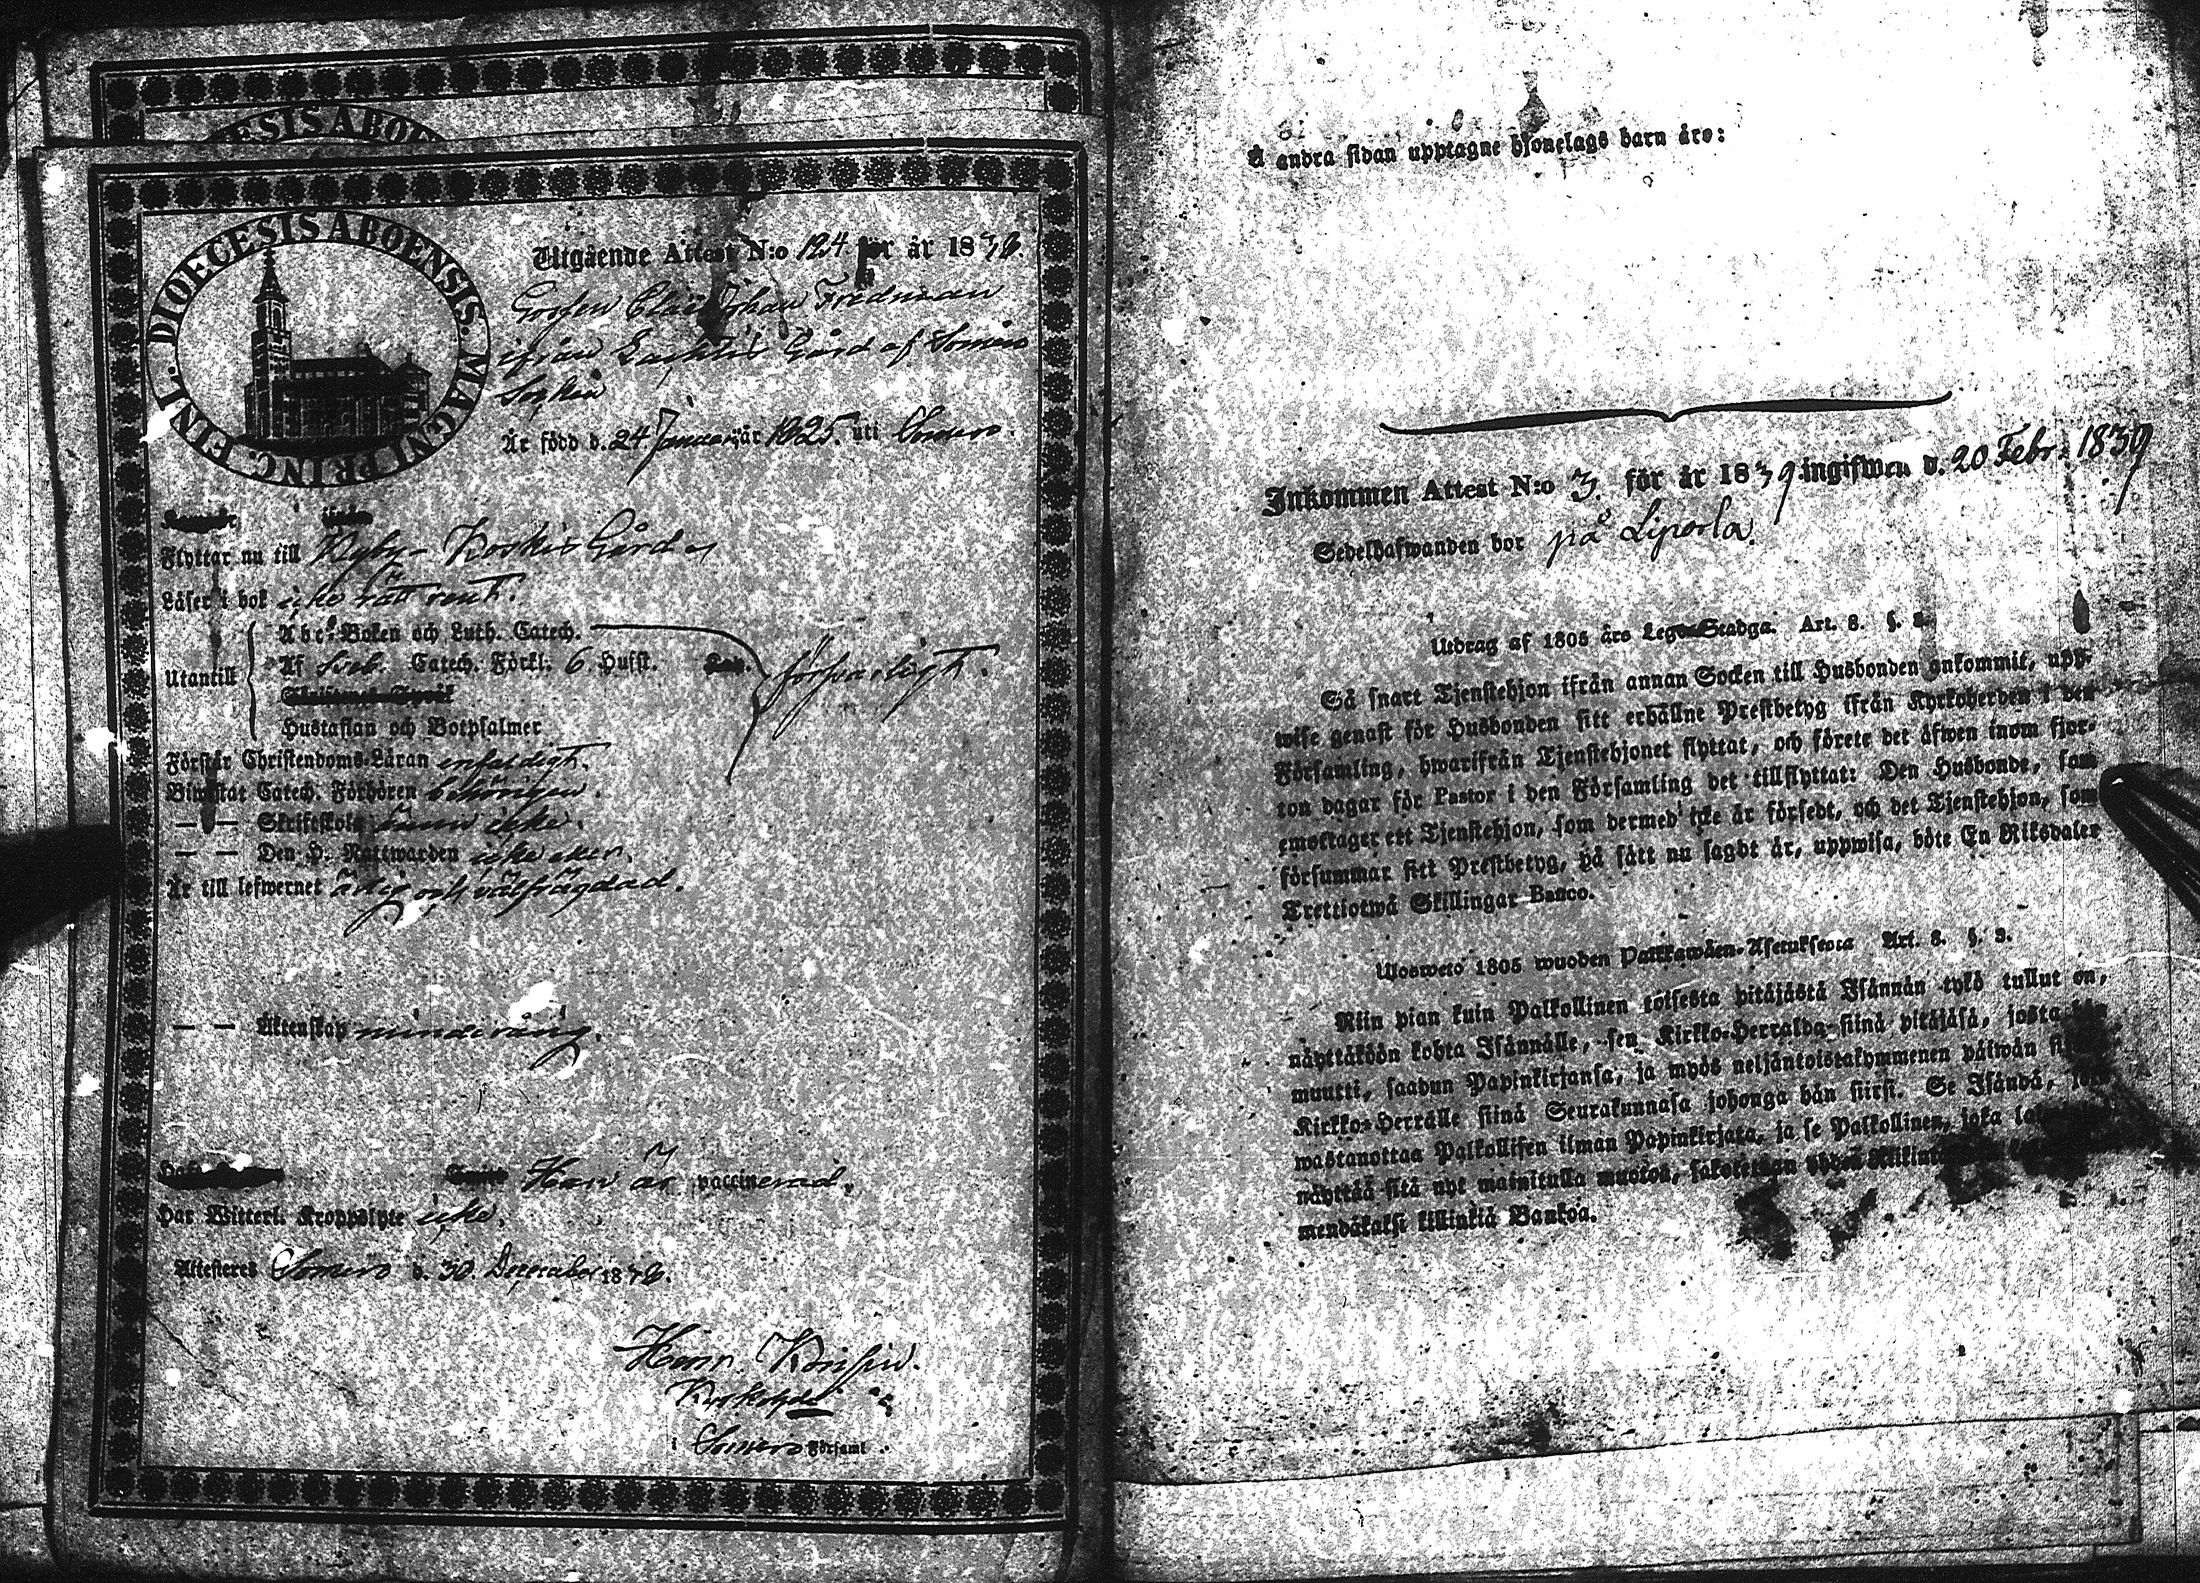 DIOECESIS ABOE
FINL. DIOECESIS ABOENSIS. MAGNI PRINC.
Utgående Attest N:o 124 för år 1838.
Gossen Claes Johan Fredman
ifrån Gård af Somero
Socken
Är född d. 24 Januarii år 1825. uti Somero.
Flyttar nu till Kyby- Koskis Gård
Läser i bok icke rätt rent.
Utantill
Abc-Boken och Luth. Catech.
Af Sveb. Catech. Förkl. 6. Hufst.
försvarligt.
Hustaflan och Botpsalmer
Förstår Christendoms-Läran enfaldigt.
Biwistat Catech. Förhören behörigen.
— — Skriftskola ännu icke.
— — Den H. Nattwarden icke eller.
Är till lefwernet ärlig och välfrägdad.
— — Äktenskap minderårig.
Han är vaccinerad.
Har Witterl. Kroppslyte icke.
Attesteres Somero d. 30. December 1838.
Henr.
i Somero Församl.
Å andra sidan upptagne hjonelags barn äro:
Inkommen Attest N:o 3. för år 1839 ingifwen d. 20 Febr. 1839
Sedelhafwanden bor på Liperla.
Utdrag af 1805 års Lego-Stadga. Art. 8. §. 3.
Så snart Tjenstehjon ifrån annan Socken till Husbonden ankommit, upp-
wise genast för Husbonden sitt erhållne Prestbetyg ifrån Kyrkoherden i den
Församling, hwarifrån Tjenstehjonet flyttat, och förete det äfwen inom fjor-
ton dagar för Pastor i den Församling det tillflyttat: Den Husbonde, som
emottager ett Tjenstehjon, som dermed icke är försedt, och det Tjenstehjon, som
försummar sitt Prestbetyg, på sätt nu sagdt är, uppwisa, böte En Riksdaler
Trettiotwå Skillingar Banco.
Ulosweto 1805 wuoden Palkkawäen-Asetuksesta Art. 8. §. 3.
Niin pian kuin Palkollinen toisesta pitäjästä Isännän tykö tullut on,
näyttäköön kohta Isännälle, sen Kirkko-Herralda siinä pitäjäsä, josta hän
muutti, saadun Papinkirjansa, ja myös neljäntoistakymmenen päiwän
Kirkko-Herralle siinä Seurakunnasa johonga hän siirsi. Se Isändä, joka
wastanottaa Palkollisen ilman Papinkirjata, ja se Palkollinen, joka
näyttää sitä nyt mainitulla muotoa, sakotetaan
mendäkaksi killinkiä Bankoa.